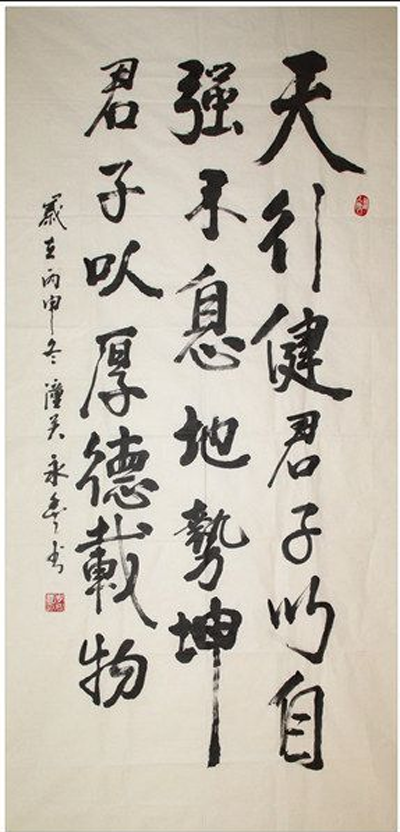 天行健君子以自
强不息地勢坤
君子以厚德載物
歲在丙申冬潼关永奇书